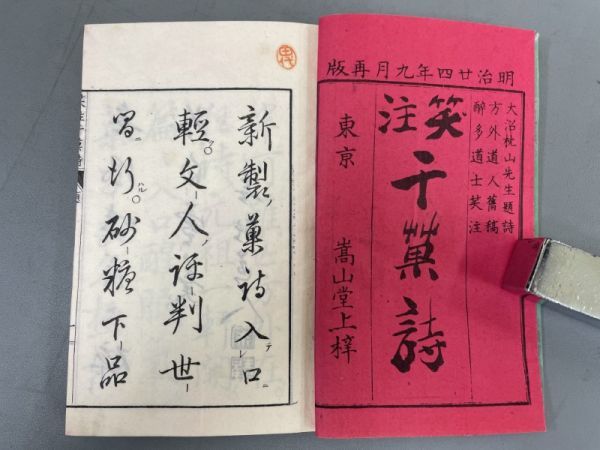 明治廿四年九月再版
大沼枕山先生題詩
方外道人舊稿
醉多道士笑注
笑注
干菓詩
東京 嵩山堂上梓
新製菓詩入テ口ニ
輕。文人評判世
間行ハル。砂糖下品